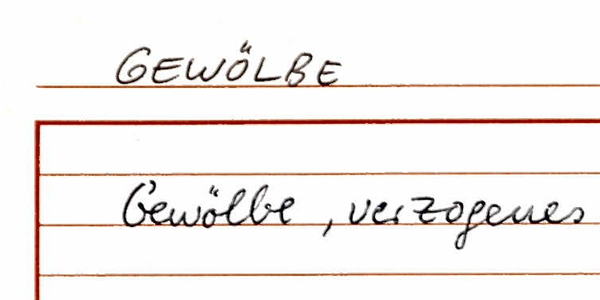 GEWÖLBE
Gewölbe, verzogenes